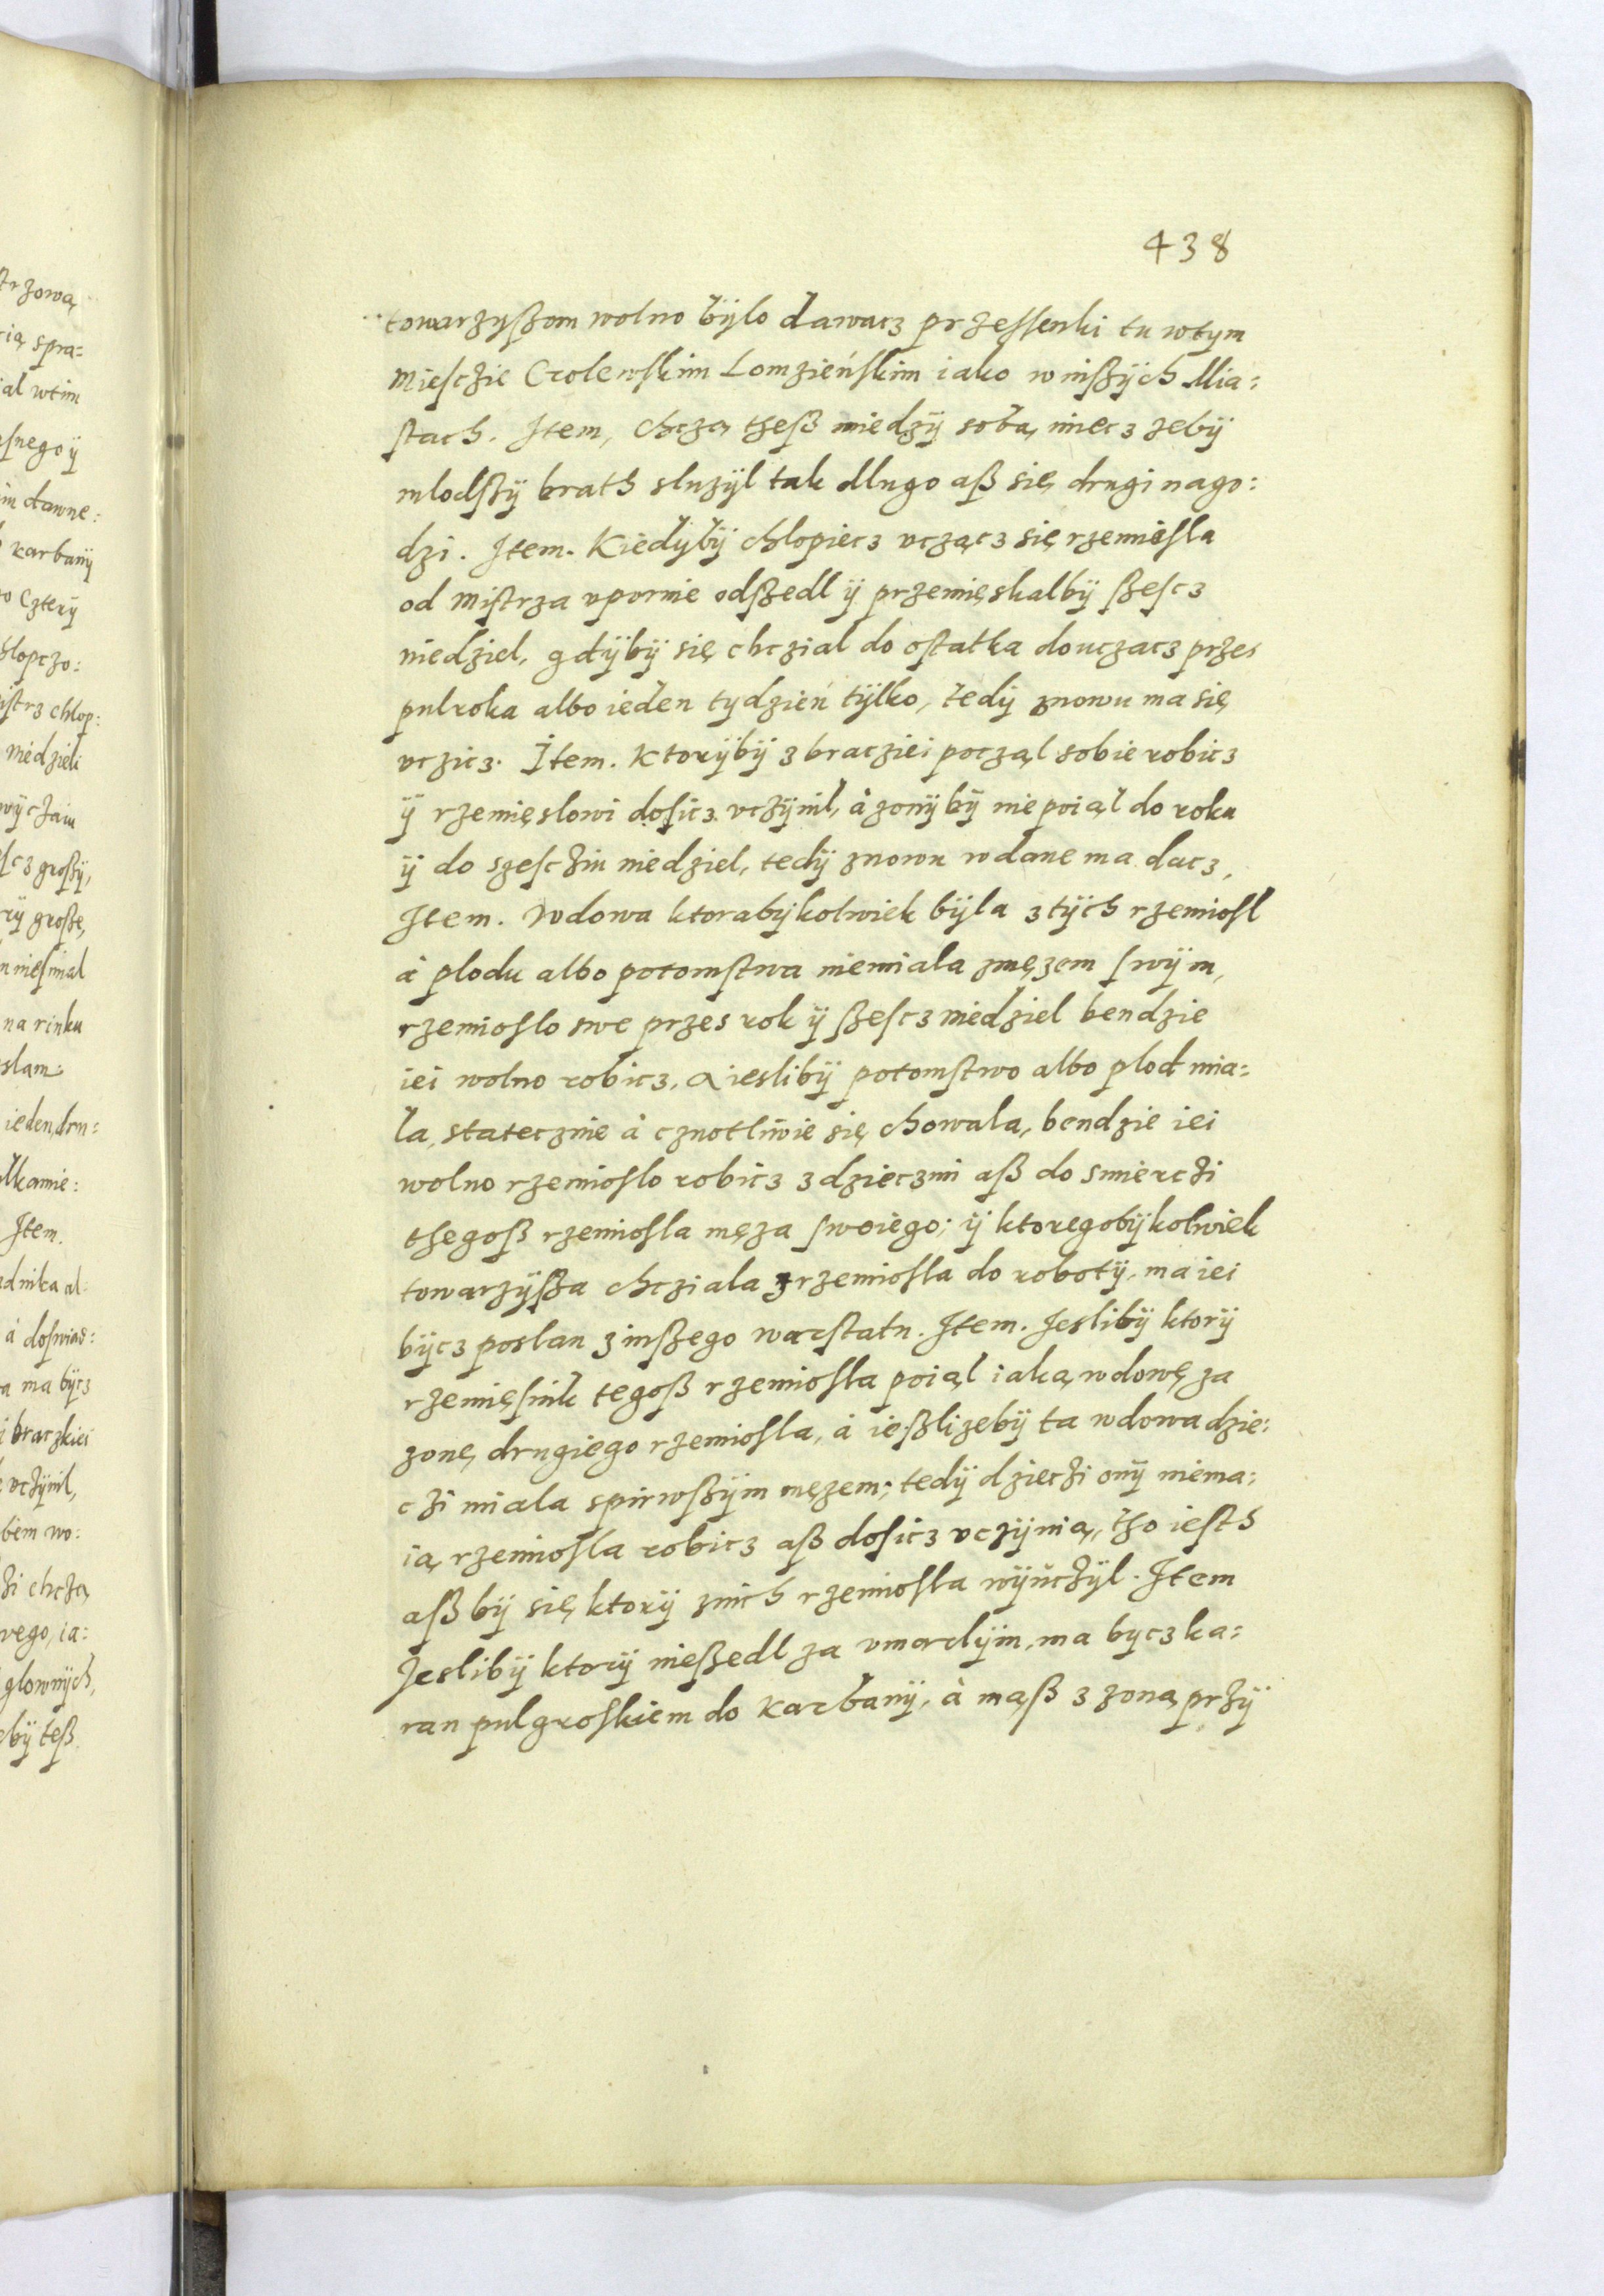 438
towarzyßom wolno bÿlo dawacz przeſſenki tu wtym
Mieſczie Crolewſkim Lomzieńſkim iako winßÿch Mia:
ſtach. Item, chczą theß miedzÿ sobą, miecz zebÿ
mlodßÿ brath sluzÿl tak dlugo aß się drugi nago:
dzi. Item. Kiedÿbÿ chlopiecz vczącz się rzemiesla
od Miſtrza vpornie odßedl ÿ przemięskalbÿ ßeſcz
niedziel, gdÿbÿ się chczial do oſtatka douczacz przes
pulroka albo ieden tydzień tÿlko, tedÿ znowu ma się
vczicz. Item. Ktorÿbÿ z bracziei począl sobie robicz
ÿ rzemięslowi doſicz vczÿnil, à zonÿ bÿ nie poiąl do roku
ÿ do szeſcziu niedziel, tedÿ znowu wdane ma dacz,
Item. Wdowa ktorabÿkolwiek bÿla z tÿch rzemioſl
à plodu albo potomſtwa niemiala zmęzem ſwÿm,
rzemioſlo swe przes rok ÿ ßeſcz niedziel bendzie
iei wolno robicz, A ieslibÿ potomſtwo albo plod mia:
la, statecznie à cznotliwie się chowala, bendzie iei
wolno rzemioſlo robicz z dzieczmi aß do smierczi
thegoß rzemioſla męza ſwoiego; ÿ ktoregobÿkolwiek
towarzÿßa chcziala z rzemioſla do robotÿ, ma iei
bÿcz poslan z inßego warſtatu. Item. Jeslibÿ ktorÿ
rzemięſnik tegoß rzemioſla poiąl iaką wdowę za
zonę drugiego rzemioſla, à ießlizebÿ ta wdowa dzie:
czi miala spirwßÿm męzem; tedÿ dzieczi onÿ niema:
ią rzemioſla robicz aß doſicz vczÿnią, tho ieſth
aß bÿ się ktorÿ znich rzemioſla wÿuczÿl. Item
Jeslibÿ ktorÿ nießedl za vmarlÿm, ma bycz ka:
ran pulgroſkiem do Karbanÿ, à mąß z zoną przÿ